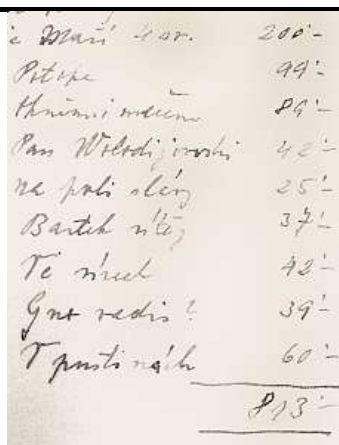 200'-
Potopa 99'-
Ohněm i mečem 89'-
Pan Wolodijovski 42'-
na poli slávy 25'-
Bartek vítěz 37'-
42'-
Quo vadis? 39'-
V pustinách 60'-
813'-